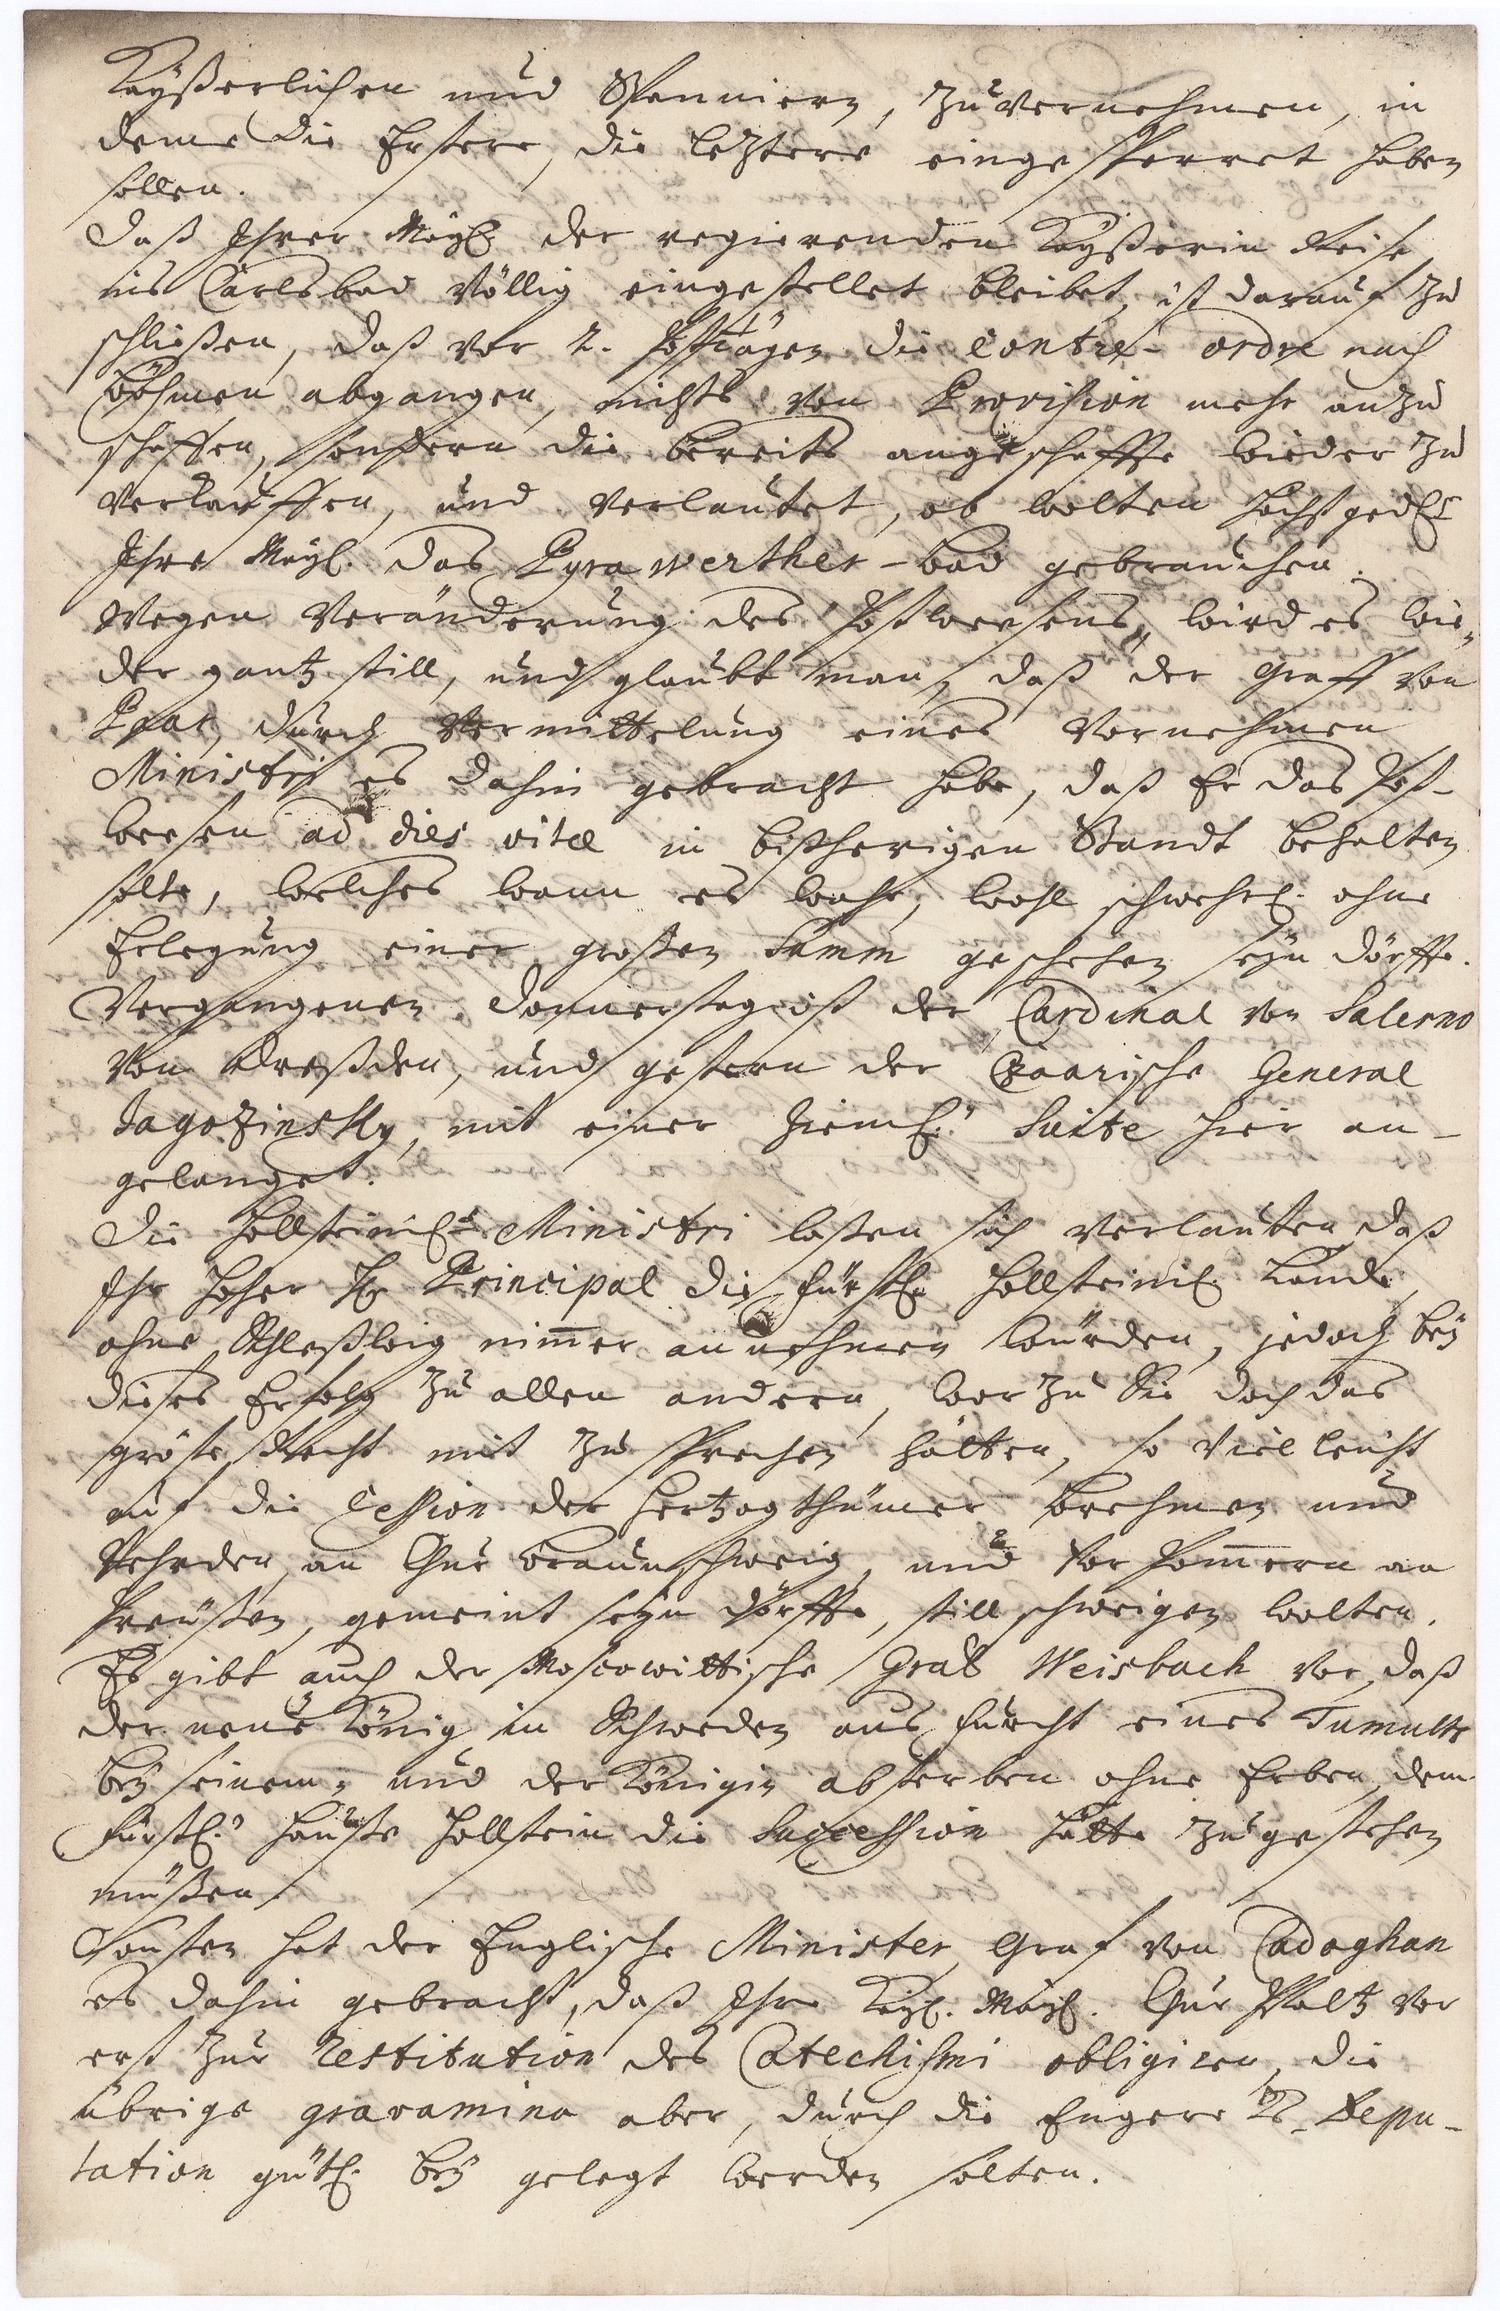 Kayßerlichen und Spanniern, zuvernehmen, in
deme die Erstere, die leztere eingesperret haben
sollen.
Daß Ihrer Mayl. der regierenden Kayßerin Reise
ins Carlsbad völlig eingestellet bleibet, ist darauß zu
schließen, daß vor 2. Posttägen die Contre-ordre nach
Böhmen abgangen, nichts von Provision mehr anzu
schaffen, sondern die bereits angeschaffte wieder zu
verkauffen, und verlautet, ob wolten höchstged.
Ihre Mayl. das Pyrawerther-bad gebrauchen.
Wegen Veränderung des Postweesens, wird es wie„
der gantz still, und glaubt man, daß der Graff von
Paar, durch Vermittelung eines Vornehmen
Ministri es dahin gebracht habe, daß Er das Post-
weesen ad dies vitæ in bißherigen Standt behalten
solte, welches wann es wahr, wohl schwehrl. ohne
Erlegung einer großen Summ geschehen seyn dörffte.
Vergangenen Donnerstag ist der Cardinal von Salerno
von Dreßden, und gestern der Czaarische General
Jagozinsky, mit einer zieml. Suite hier an-
gelanget.
Die Hollsteinl. Ministri laßen sich verlauten, daß
Ihr Hoher Hr Principal die fürstl. Hollsteinl. Lande,
ohne Schleßwig nimmer annehmen würden, jedoch bey
dieses Erfolg zu allen andern, worzu Sie doch das
gröste Recht mit zu sprechen hätten, so vielleicht
auf die Cession der Hertzogthümer Brehmen und
Vehrden, an Chur Braunschweig, und Vor Pommern an
Preüßen, gemeint seyn dörffte, still schweigen wolten.
Es gibt auch der Moscowittische Graf Weisbach vor, daß
der neue König in Schweden aus furcht eines Tumults
bey seinem- und der Königin absterben ohne Erben, dem
fürstl. Hauße Hollstein die Succession hätte zugestehen
müßen.
Sonsten hat der Englische Minister, Graf von Cadoghan
es dahin gebracht, daß Ihre Kayl. Mayl. Chur Pfaltz vor
erst zur Restitution des Catechismi obligiren, die
übrige gravamina aber, durch die Engere Rs-Depu-
tation gütl. bey gelegt werden solten.